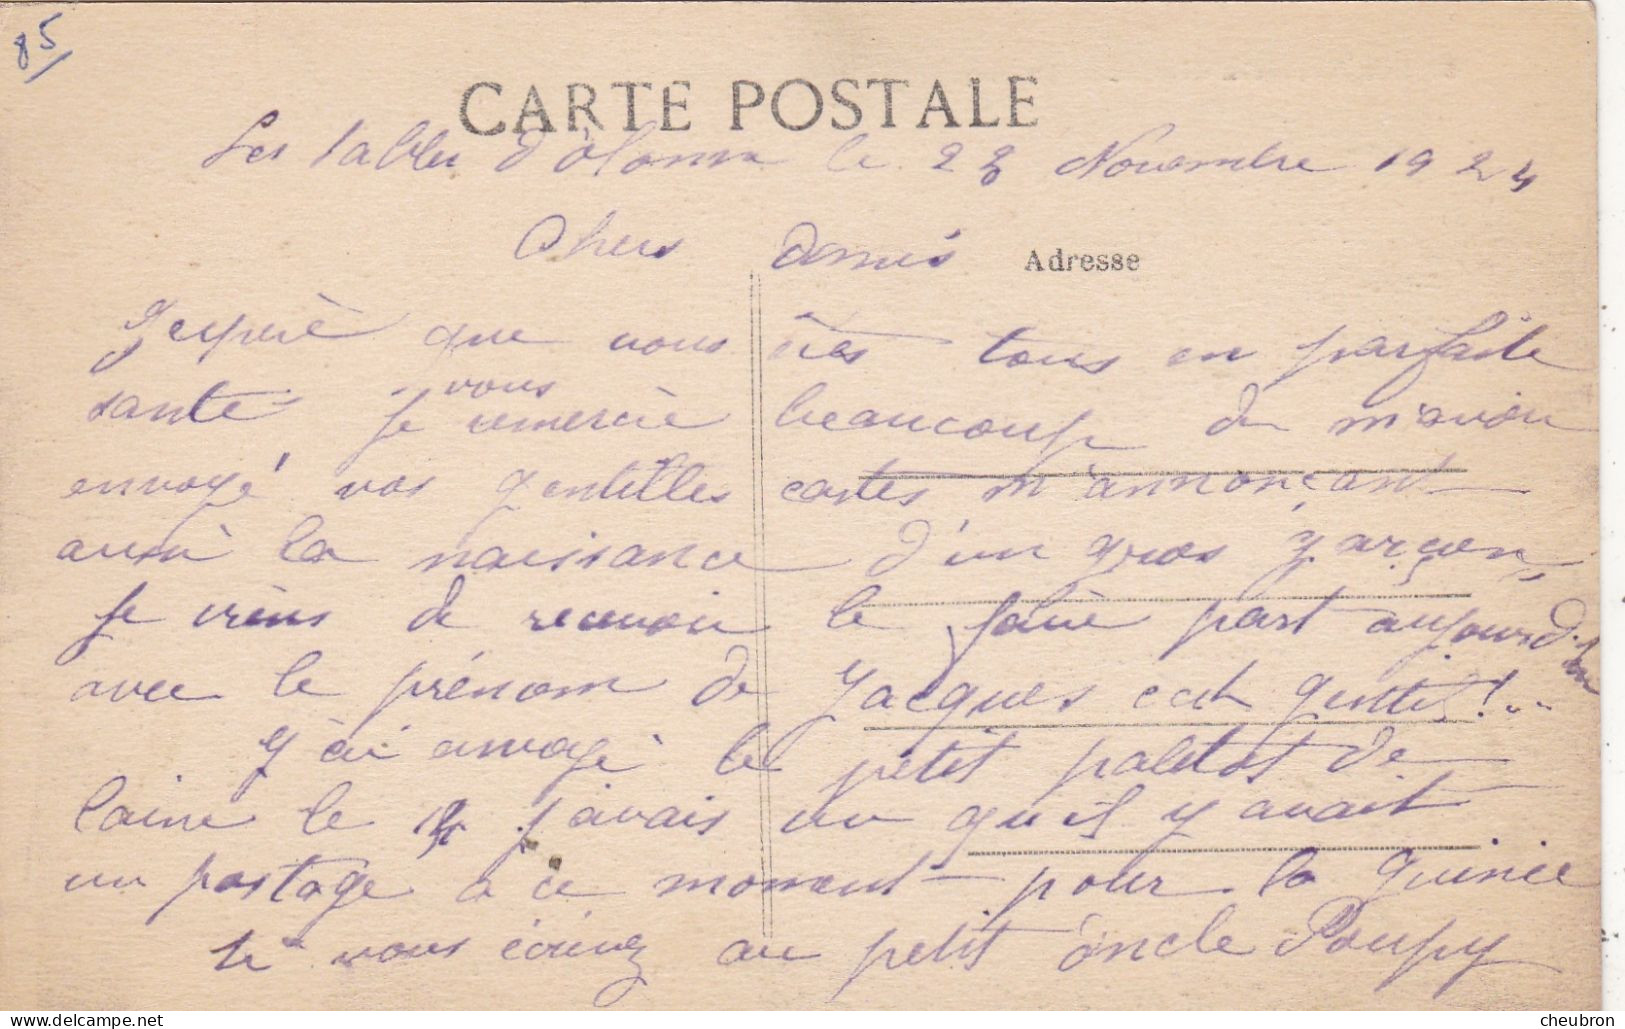 85
CARTE POSTALE
Les Sables d'òlonne le 23 Novembre 1924
Chers amis
Adresse
J'espère que vous êtes tous en parfaite
santé vous
Je remercie beaucoup de m'avoir
envoyé vos gentilles cartes m'annonçant
aussi la naissance d'un gros garçon
Je viens de recevoir le faire part aujourd'hui
avec le prénom de Jacques c'est gentil!..
J'ai envoyé le petit paletot de
laine le j'avais vu qu'il y avait
un postage à ce moment pour la guinée
si vous écrivez au petit oncle Poupy
cheubron